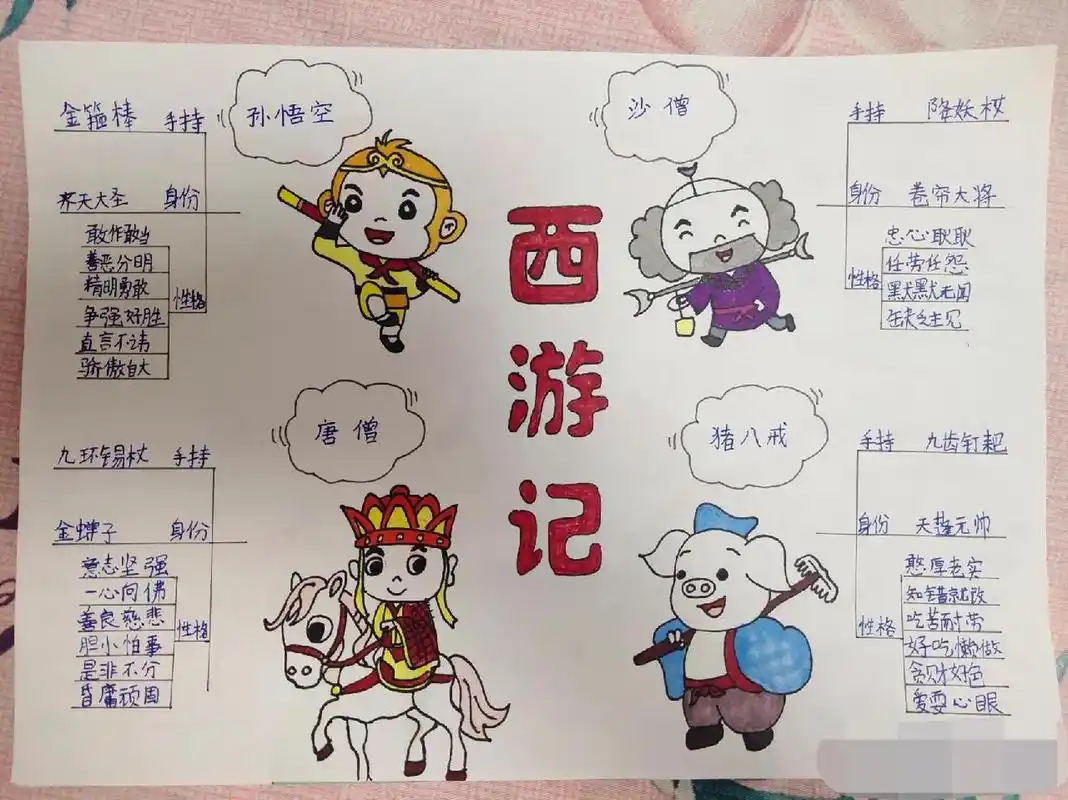 西
游
记
孙悟空
金箍棒 手持
齐天大圣 身份
性格
敢作敢当
善恶分明
精明勇敢
争强好胜
直言不讳
骄傲自大
沙僧
手持 降妖杖
身份 卷帘大将
性格
忠心耿耿
任劳任怨
默默无闻
缺乏主见
唐僧
九环锡杖 手持
金蝉子 身份
性格
意志坚强
一心向佛
善良慈悲
胆小怕事
是非不分
昏庸顽固
猪八戒
手持 九齿钉耙
身份 天蓬元帅
性格
憨厚老实
知错就改
吃苦耐劳
好吃懒做
贪财好色
爱耍心眼